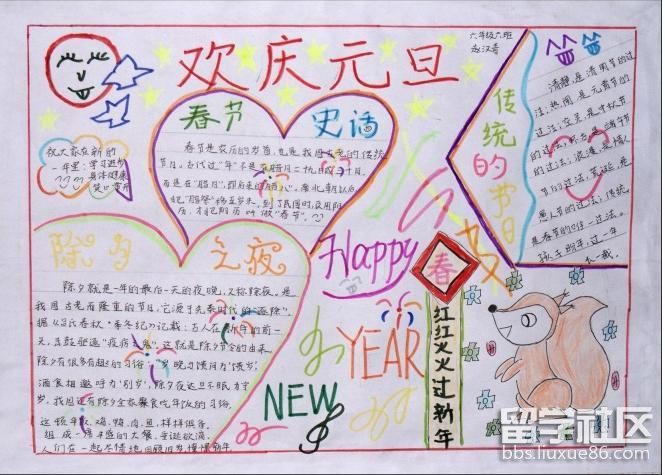 欢庆元旦
六年级六班
春节
史话
祝大家在新的
一年里：学习进步
身体健康
笑口常开
春节是农历的岁首，也是我国古老的传统
节日。古代过"年"不是在腊月二十
而是在"腊日"，即后来的"腊八"。南北朝以后
把"腊祭"移至岁末。到了民国时，改用阳
历，才把阴历年叫做"春节"。
传统的节日
清静，是清明节的过
法；热闹，是元宵节的
过法；
的过法；
的过法；浪漫，是情人
节的过法；
愚人节的过法；传统
是春节的唯一过法。
孩子盼年，过一年
长一截。
除夕
之夜
除夕就是一年的最后一天的夜晚，又称除夜。是
我国古老而隆重的节日，它源于先秦时代的"逐除"。
据《吕氏春秋·季冬纪》记载，古人在新年的前一
天，击鼓驱逐"疫疠之鬼"，这就是除夕节令的由来
除夕有很多有趣的习俗："岁晚相馈问为'馈岁'，
酒食相邀呼为'别岁'，除夕夜达旦不眠为守
岁。我国还有除夕全家聚食吃年饭的习俗。
这顿年饭，鸡、鸭、肉、鱼，样样俱全。
组成一席丰盛的大餐，垂涎欲滴。
人们在一起尽情地回顾旧岁憧憬新年。
Happy
NEW
YEAR
春
红红火火过新年
留学社区
bbs.liuxue86.com